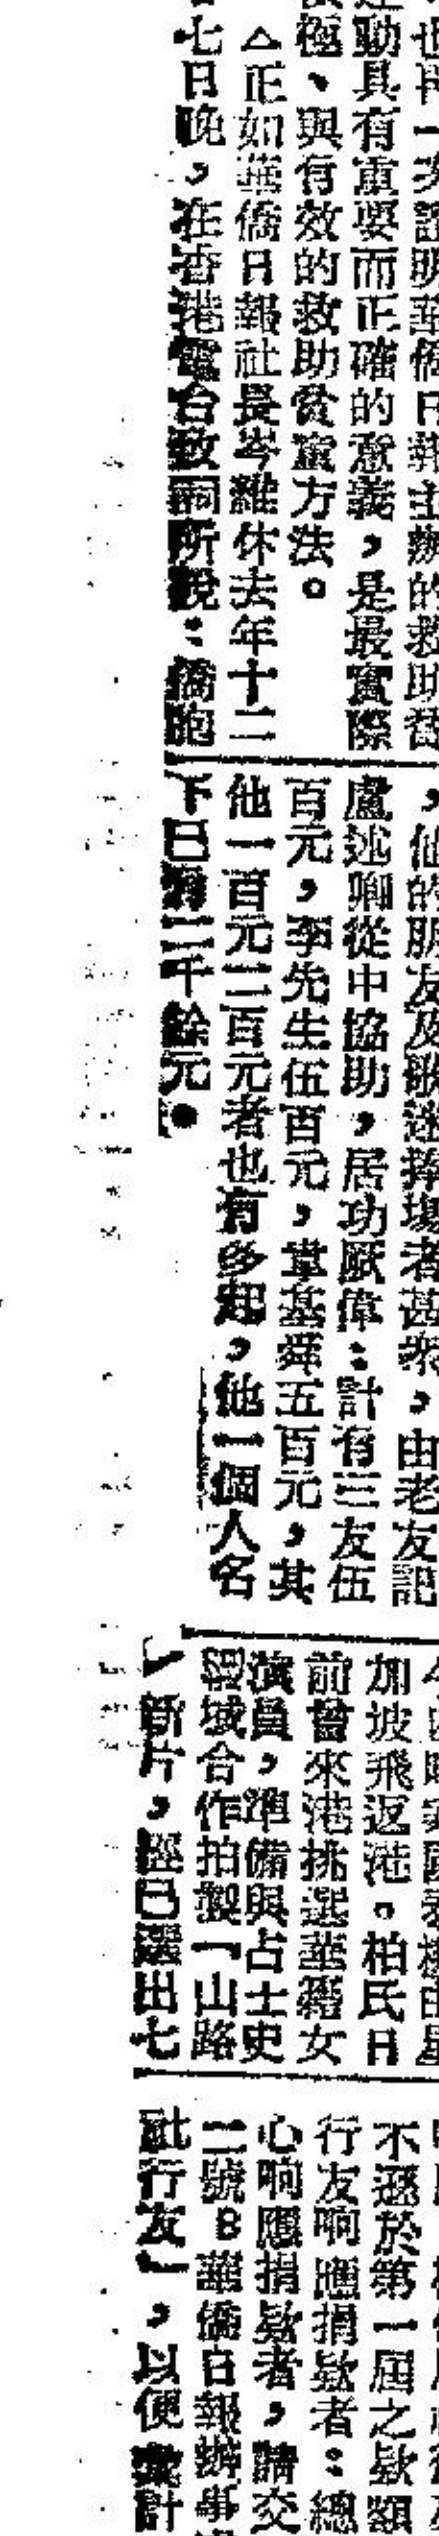 也再一次證明華僑日報主辦的救助
動具有重要而正確的意義，是最實際
極、與有效的救助貧童方法。
△正如華僑日報社長岑維休去年十二
七日晚，在香港電台致詞所說：僑胞
，他的朋友及歌迷捧場者甚衆，由老友記
盧述卿從中協助，居功厥偉：計有三友伍
百元，李先生伍百元，韋基舜五百元，其
他一百元二百元者也有多起，他一個人名
下已有二千餘元。
加坡飛返港。柏民日
前曾來港挑選華籍女
演員，準備與占士史
域合作拍製「山路
」新片，經已選出七
不遜於第一屆之欵額
行友响應捐欵者：總
心响應捐欵者，請交
二號B華僑日報辦事
社行友」，以便彙計